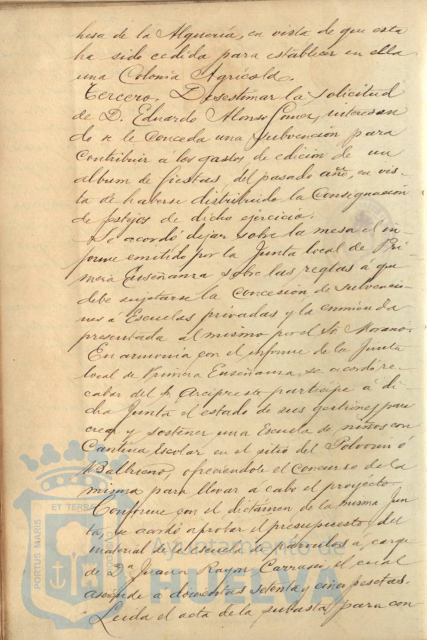 hesa de la Alquería, en vista de que esta
ha sido cedida para establecer en ella
una Colonia Agrícola.
Tercero. Desestimar la solicitud
de D. Eduardo Alonso Gómez, interesan
do se le conceda una subvención para
contribuir a los gastos de edición de un
album de fiestas del pasado año, en vis-
ta de haberse distribuido la Consignación
de festejos de dicho ejercicio.
Se acordó dejar sobre la mesa el in
forme emitido por la Junta local de Pri
mera Enseñanza sobre las reglas á que
debe sujetarse la concesión de subvencio
nes á Escuelas privadas y la enmienda
presentada al mismo por el Sr. Morano.
En armonía con el informe de la Junta
local de Primera Enseñanza, se acordó re
cabar del Sr. Arcipreste participe á di
cha Junta el estado de sus gestiones para
crear y sostener una Escuela de niños con
Cantina Escolar en el sitio del Polvorín ó
Balbueno, ofreciéndole el Concurso de la
misma para llevar a cabo el proyecto.
Conforme con el dictámen de la misma Jun
ta, se acordó aprobar el presupuesto del
material de la escuela de párvulos á cargo
de Dª Juana Rayo Carrasco, el cual
asciende a doscientas setenta y cinco pesetas.
Leída el acta de la subasta para con
PORTUS MARIS ET TERRAE CUSTODIA
Ayuntamiento de
HUELVA